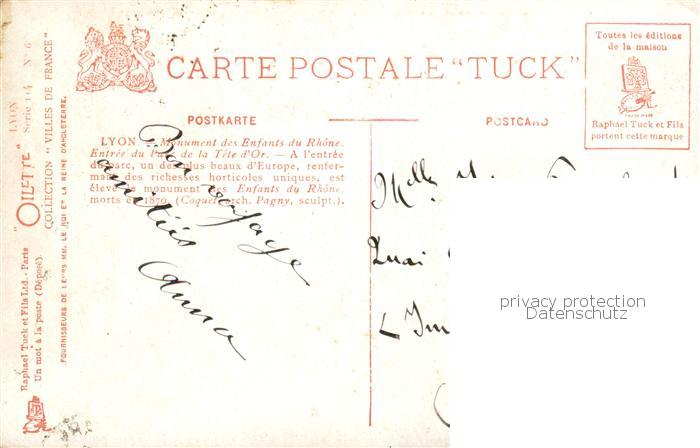 CARTE POSTALE "TUCK"
Toutes les éditions
de la maison
Raphael Tuck et Fils
portent cette marque
POSTKARTE
POSTCARD
LYON. — Monument des Enfants du Rhône.
Entrée du Parc de la Tête d'Or. — A l'entrée
du parc, un des plus beaux d'Europe, renfer-
mant des richesses horticoles uniques, est
élevé le monument des Enfants du Rhône,
morts en 1870. (Coquet, arch. Pagny, sculpt.).
Bon voyage
amitiés
Anna
Melle
Quai
LYON
"OILETTE" Série 114 Nº 6
COLLECTION "VILLES DE FRANCE"
Raphael Tuck et Fils Ltd. - Paris
Un mot à la poste (Déposé).
FOURNISSEURS DE LEURS MM. LE ROI ET LA REINE D'ANGLETERRE.
privacy protection
Datenschutz